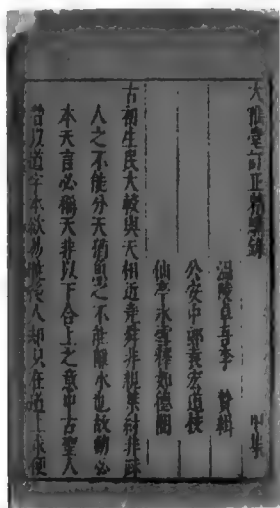 大雅堂訂正枕中十書 甲集
溫陵卓吾李 贄輯
公安中郎袁宏道校
仙亭永雪釋如德閱
古初生民大較與天相近堯舜非親桀紂非疎
人之不能分天猶魚之不能離水也故動必
本天言必稱天非以下合上之意中古聖人
當以道字本欲易 人却只在道上求便